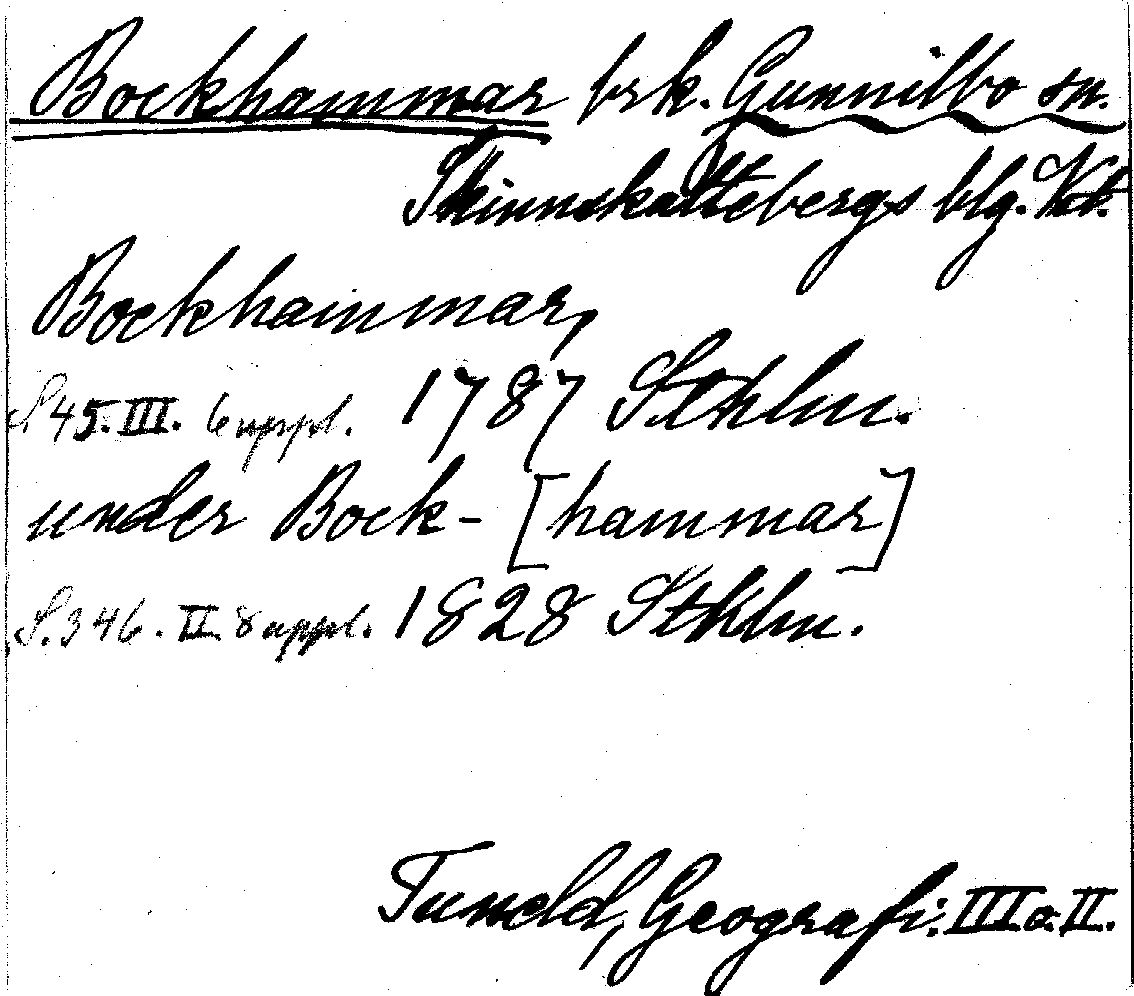 Bockhammar brk. Gunnilbo sn.
Skinnskattebergs blg. Vstm.
Bockhammar,
S 45. III. 6 uppl. 1787 Sthlm.
under Bock- [hammar]
S. 346. II. 8 uppl. 1828 Sthlm.
Tuneld, Geografi: III o. II.